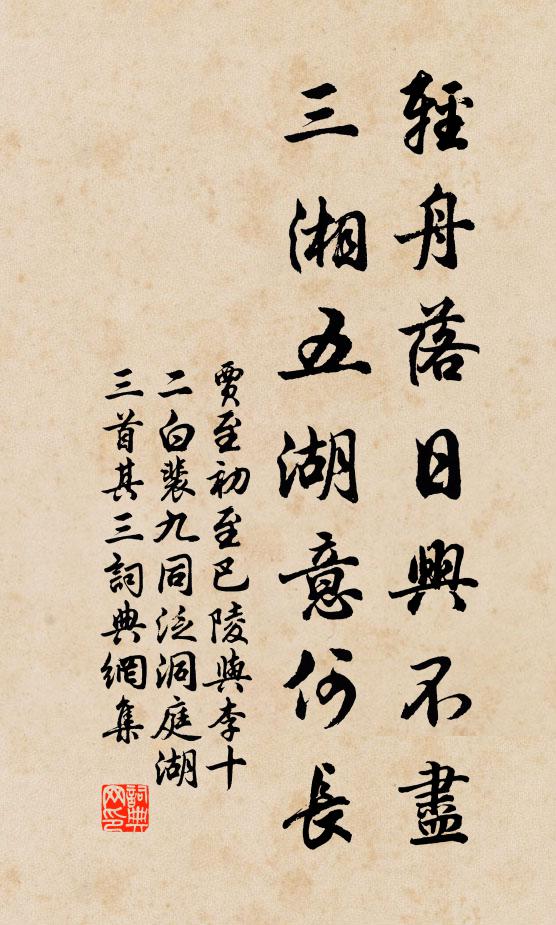 輕舟落日興不盡
三湘五湖意何長
賈至初至巴陵與李十
二白裴九同泛洞庭湖
三首其三詞典網集
詞典网印